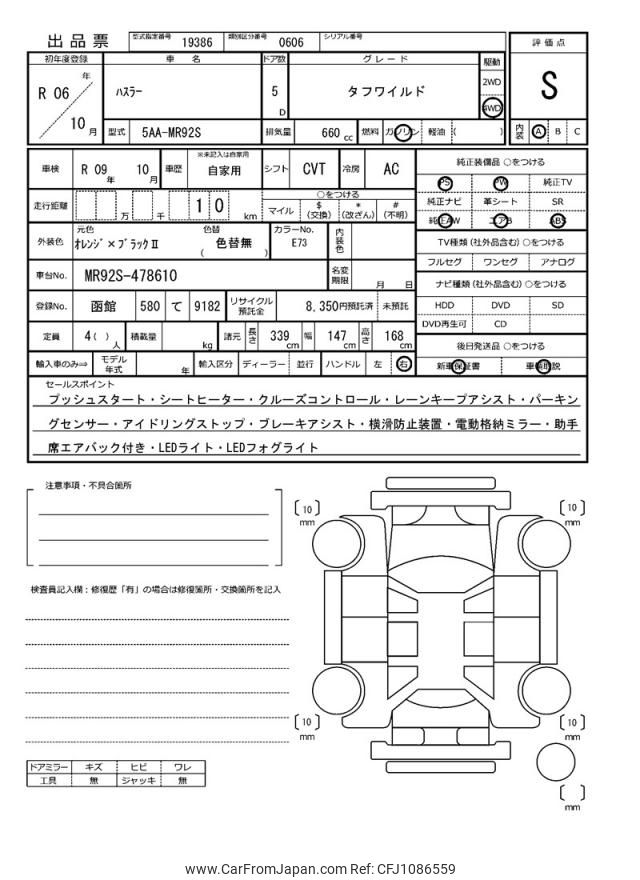 出品票 型式指定番号 19386 類別区分番号 0606 シリアル番号
評価点
S
内装 A B C
初年度登録 車名 ドア数 グレード 駆動
R 06 年 10 月 ハスラー 5 D タフワイルド 2WD 4WD
型式 5AA-MR92S 排気量 660 cc 燃料 ガソリン 軽油 ( )
車検 R 09 年 10 月 車歴 ※未記入は自家用 自家用 シフト CVT 冷房 AC
走行距離 万 千 1 0 km ○をつける マイル $ (交換) * (改ざん) # (不明)
外装色 元色 オレンジ×ブラックⅡ 色替 ( 色替無 ) カラーNo. E73 内装色
車台No. MR92S-478610 名変期限 月 日
登録No. 函館 580 て 9182 リサイクル預託金 8,350円預託済 未預託
定員 4( ) 人 積載量 kg 諸元 長さ 339 cm 幅 147 cm 高さ 168 cm
輸入車のみ⇒ モデル年式 年 輸入区分 ディーラー 並行 ハンドル 左 右
純正装備品 ○をつける
PS PW 純正TV
純正ナビ 革シート SR
純正AW エアB ABS
TV種類(社外品含む)○をつける
フルセグ ワンセグ アナログ
ナビ種類(社外品含む)○をつける
HDD DVD SD
DVD再生可 CD
後日発送品 ○をつける
新車保証書 車輌取説
セールスポイント
プッシュスタート・シートヒーター・クルーズコントロール・レーンキープアシスト・パーキン
グセンサー・アイドリングストップ・ブレーキアシスト・横滑防止装置・電動格納ミラー・助手
席エアバック付き・LEDライト・LEDフォグライト
注意事項・不具合箇所
検査員記入欄：修復歴「有」の場合は修復箇所・交換箇所を記入
ドアミラー キズ ヒビ ワレ
工具 無 ジャッキ 無
[10] mm
[10] mm
[10] mm
[10] mm
[ ] mm
www.CarFromJapan.com Ref: CFJ1086559